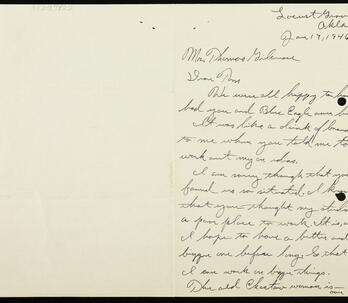 Locust Grov
Okla
Jan 17, 1946
Mr. Thomas Gilcrease
Dear Tom
We were all happy to ha
had you and Blue Eagle over he
It was like a drink of bran
to me when you told me to
work out my own ideas.
I am sorry though that you
found is so situated. I kno
that you thought my studio
a poor place to work. It is, a
I hope to have a better and
bigger one before long. So that
I can work on bigger things.
The old Choctaw woman is
over